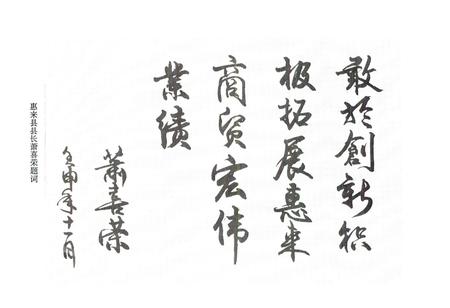 敢於創新积
极拓展惠来
商贸宏伟
業績
萧喜荣
壬申年十一月
惠来县县长萧喜荣题词